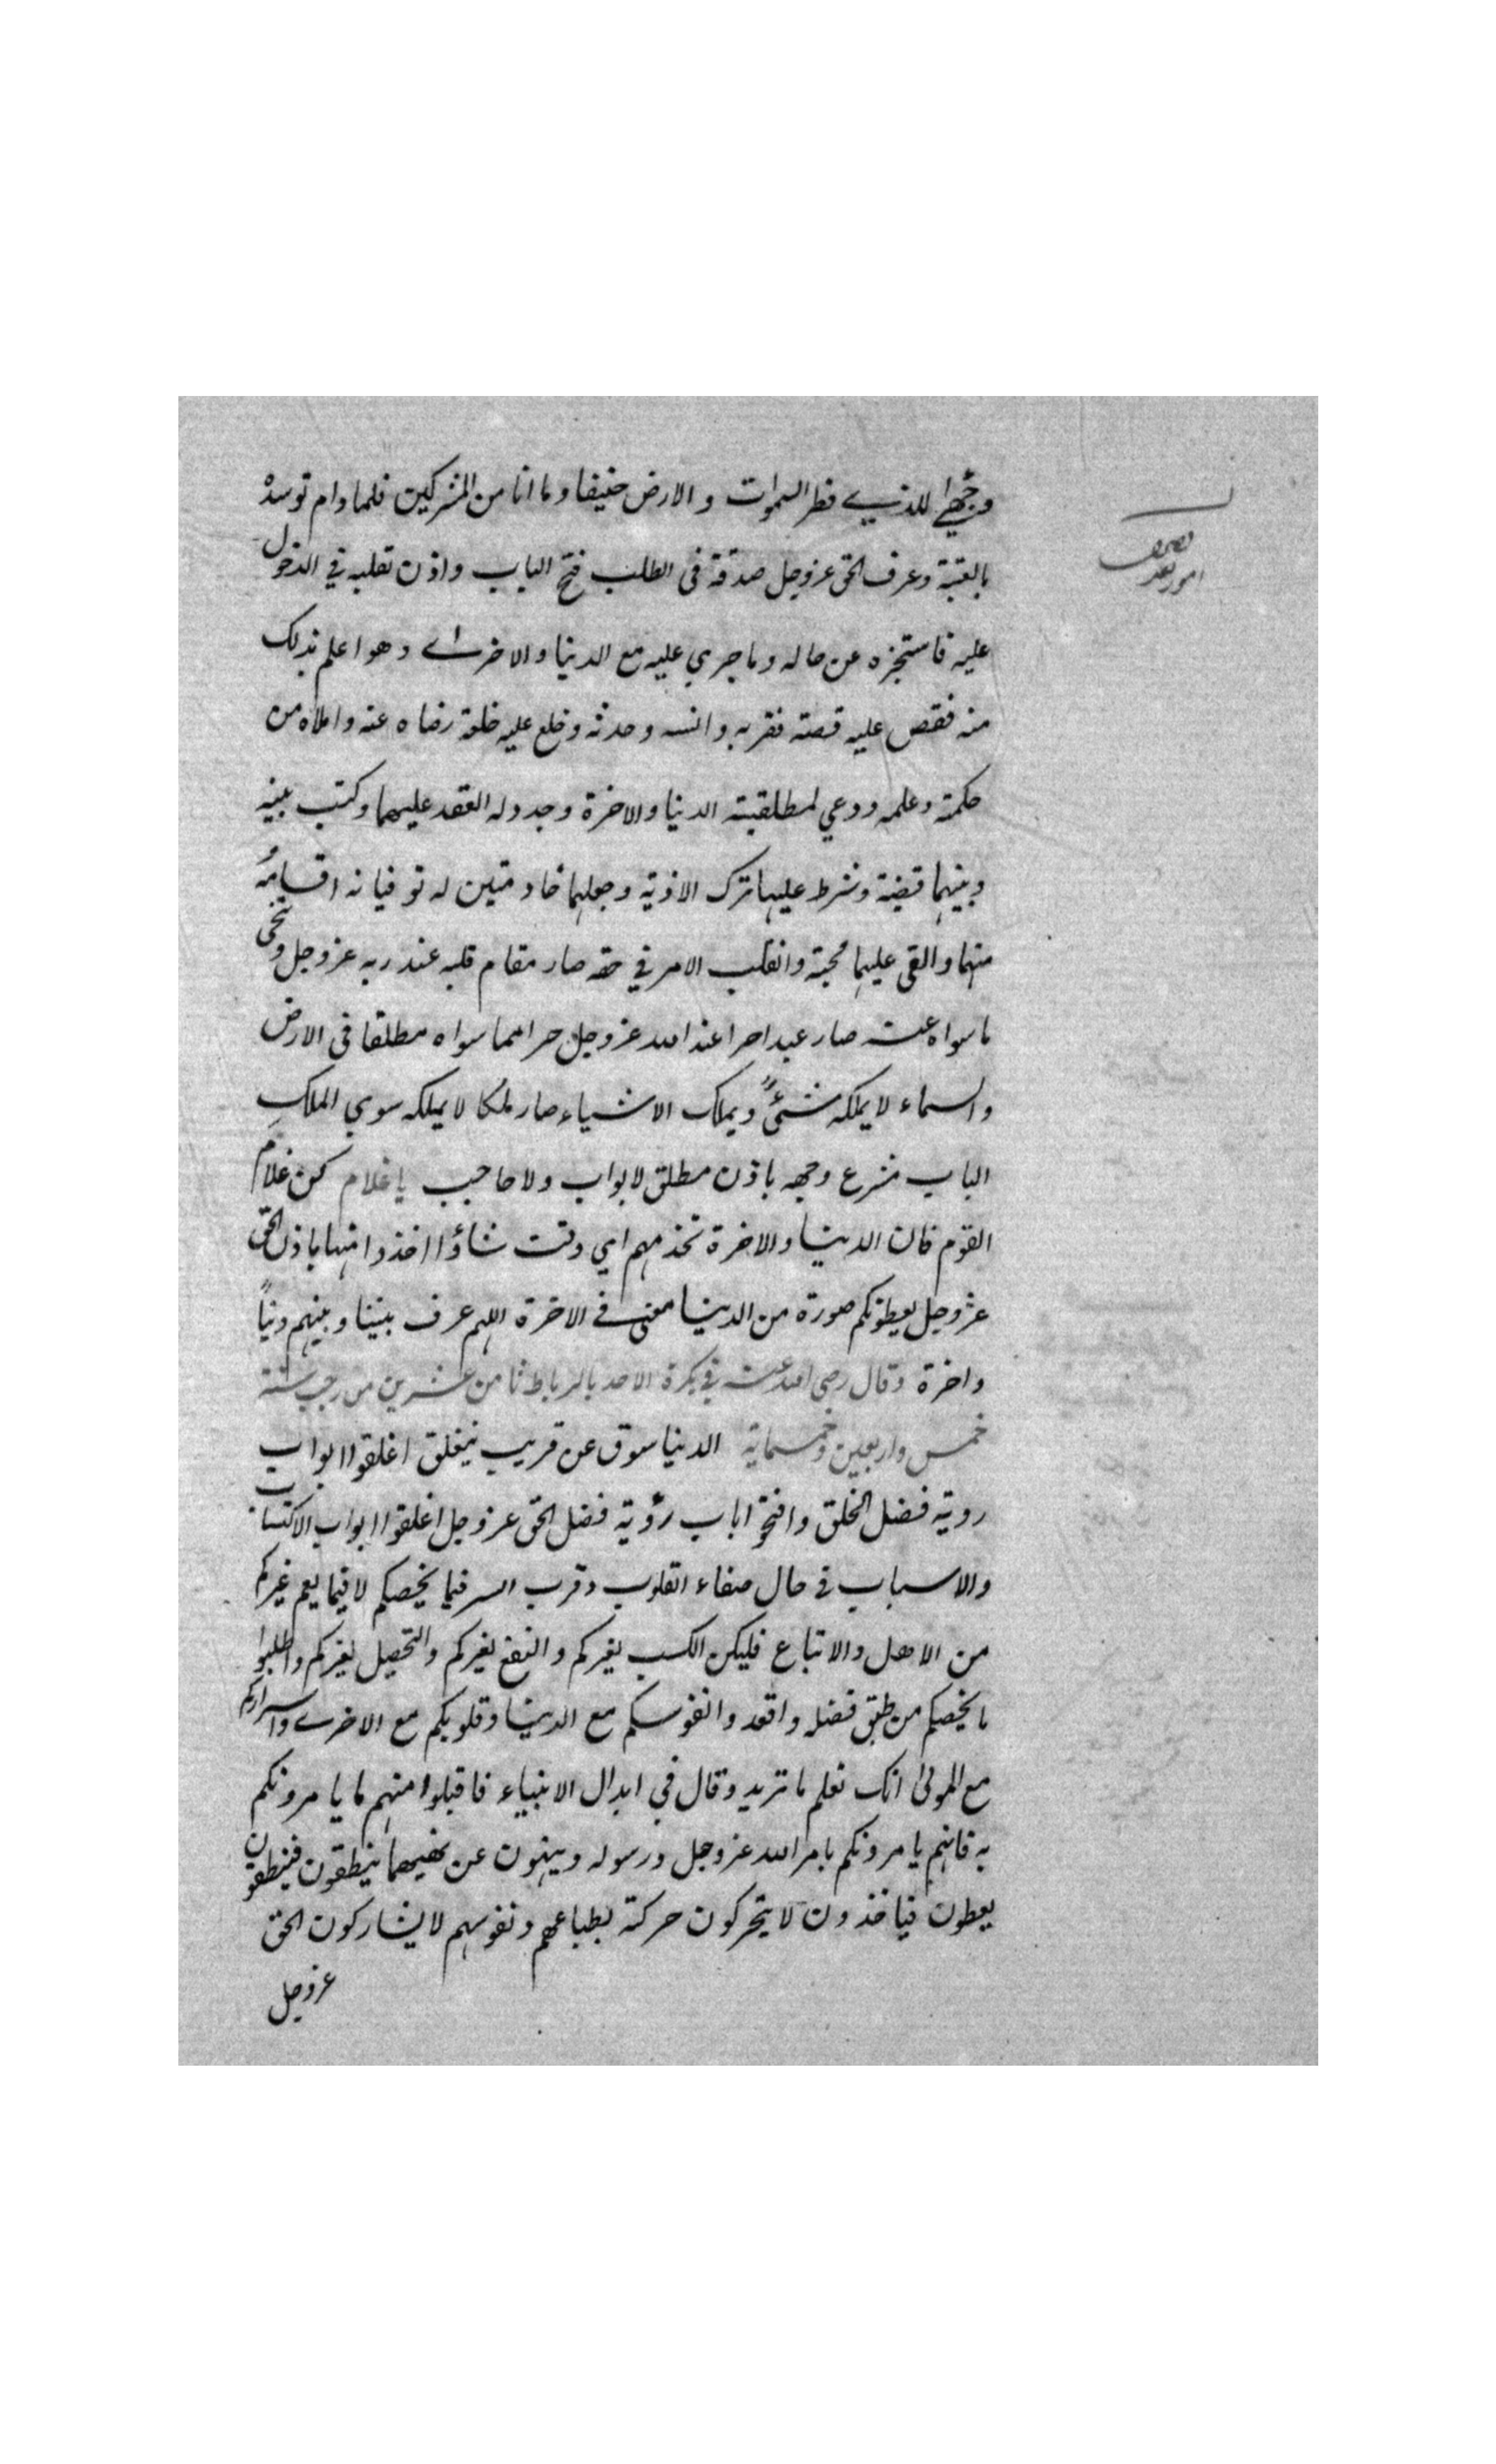 وجهي للذي فطر السموات والارض حنيفا وما انا من المشركين فلما دام توسده
بالعتبة وعرف الحق عزوجل صدقه فى الطلب فتح الباب واذن لقلبه في الدخول
عليه فاستخبره عن حاله وما جري عليه مع الدنيا والاخرى وهو اعلم بذلك
منه فقص عليه قصته فقربه وانسه وحدثه وخلع عليه خلعة رضاه عنه واملاه من
حكمته وعلمه ودعي لمطلقيته الدنيا والاخرة وجدد له العقد عليهما وكتب بينه
وبينهما قضية وشرط عليهما ترك الاذية وجعلهما خادمتين له توفيانه اقسامُه
منهما والقى عليهما محبة وانقلب الامر في حقه صار مقام قلبه عند ربه عزوجل وتنحى
ما سواه عنه صار عبدا حرا عند الله عزوجل حرا مما سواه مطلقا فى الارض
والسماء لا يملكه شئٌ ويملك الاشياء صار ملكا لا يملكه سوي الملكِ
الباب مشرع وجهه باذن مطلق لا بواب ولا حاجب يا غلام كن غلام
القوم فان الدنيا والاخرة تخدمهم اي وقت شاؤا اخذوا منها باذن الحق
عزوجل يعطونكم صورة من الدنيا معنى في الاخرة اللهم عرف بيننا وبينهم دنياً
واخرة وقال رضي الله عنه في بكرة الاحد بالرباط ثامن عشرين من رجب سنة
خمس واربعين وخمسماية الدنيا سوق عن قريب ينغلق اغلقوا ابواب
روية فضل الخلق وافتحوا باب رؤية فضل الحق عزوجل اغلقوا ابواب الاكتساب
والاسباب في حال صفاء القلوب وقرب السر فيما يخصكم لا فيما يعم غيركم
من الاهل والاتباع فليكن الكسب لغيركم والنفع لغيركم والتحصيل لغيركم واطلبوا
ما يخصكم من طبق فضله واقعدوا نفوسكم مع الدنيا وقلوبكم مع الاخرى واسراركم
مع المولى انك تعلم ما نريد وقال في ابدال الانبياء فاقبلوا منهم ما يامرونكم
به فانهم يامرونكم بامر الله عزوجل ورسوله وينهون عن نهيهما ينطقون فينطقون
يعطون فياخذون لا يتحركون حركة بطباعهم ونفوسهم لا يشاركون الحق
عزوجل